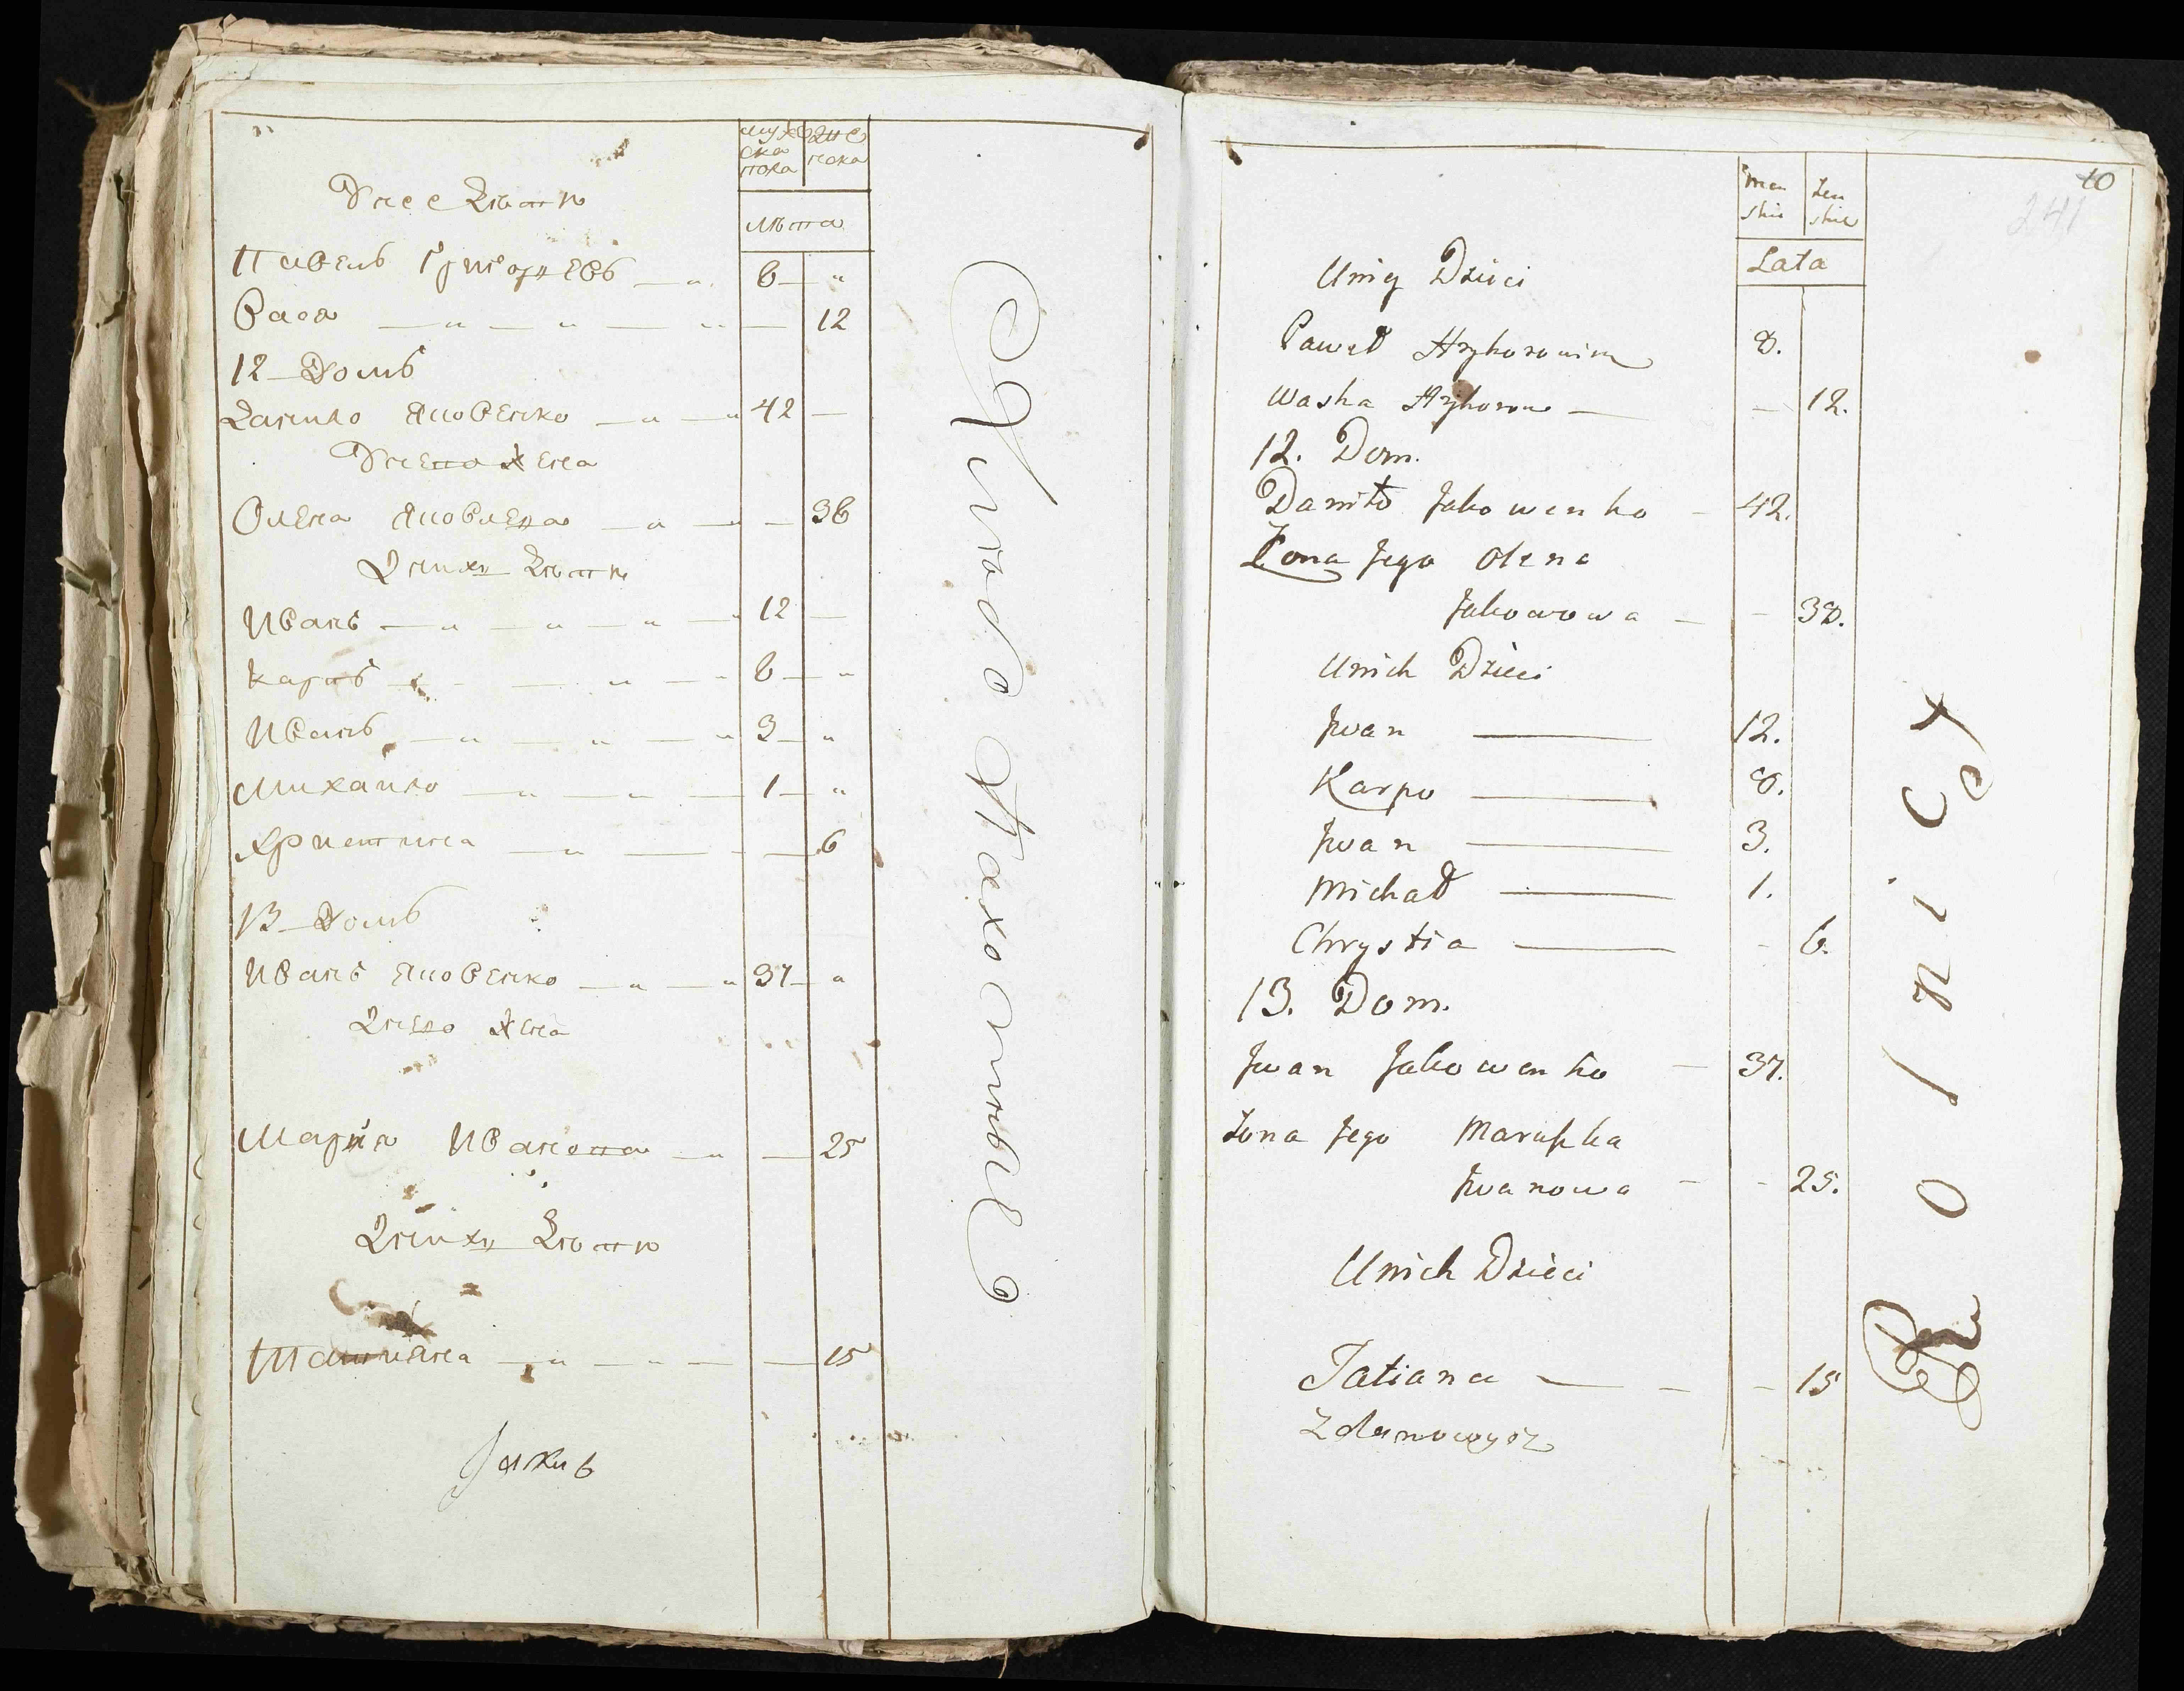 мужеска пола
женска
лѣта
У нее дѣти
Павелъ Григорїевъ — 8 —
Вася — 12
12 Домъ
Данило Яковенко — 42 —
У него жена
Олена Яковлева — 38
У нихъ дѣти
Иванъ — 12 —
Карпъ — 8 —
Иванъ — 3 —
Михайло — 1 —
Христина — 6
13 Домъ
Иванъ Яковенко — 37 —
У него жена
Марїя Иванова — 25
У нихъ дѣти
Татияна — 15
Хлѣбо Пахотные
10
241
Men skie
Żen skie
Lata
Unię Dzieci
Paweł Hryhorowim 8.
Waska Hryhorow — 12.
12. Dom.
Daniło Jakowenko - 42.
Żona Jego Olena
Jakowowa — - 38.
Unich Dzieci
Jwan — 12.
Karpo — 8.
Jwan — 3.
Michał — 1.
Chrystia — - 6.
13. Dom.
Jwan Jakowenko — 37.
Żona Jego Maruszka
Jwanowa - - 25.
Unich Dzieci
Tatiana — - - 15
Rolnicy